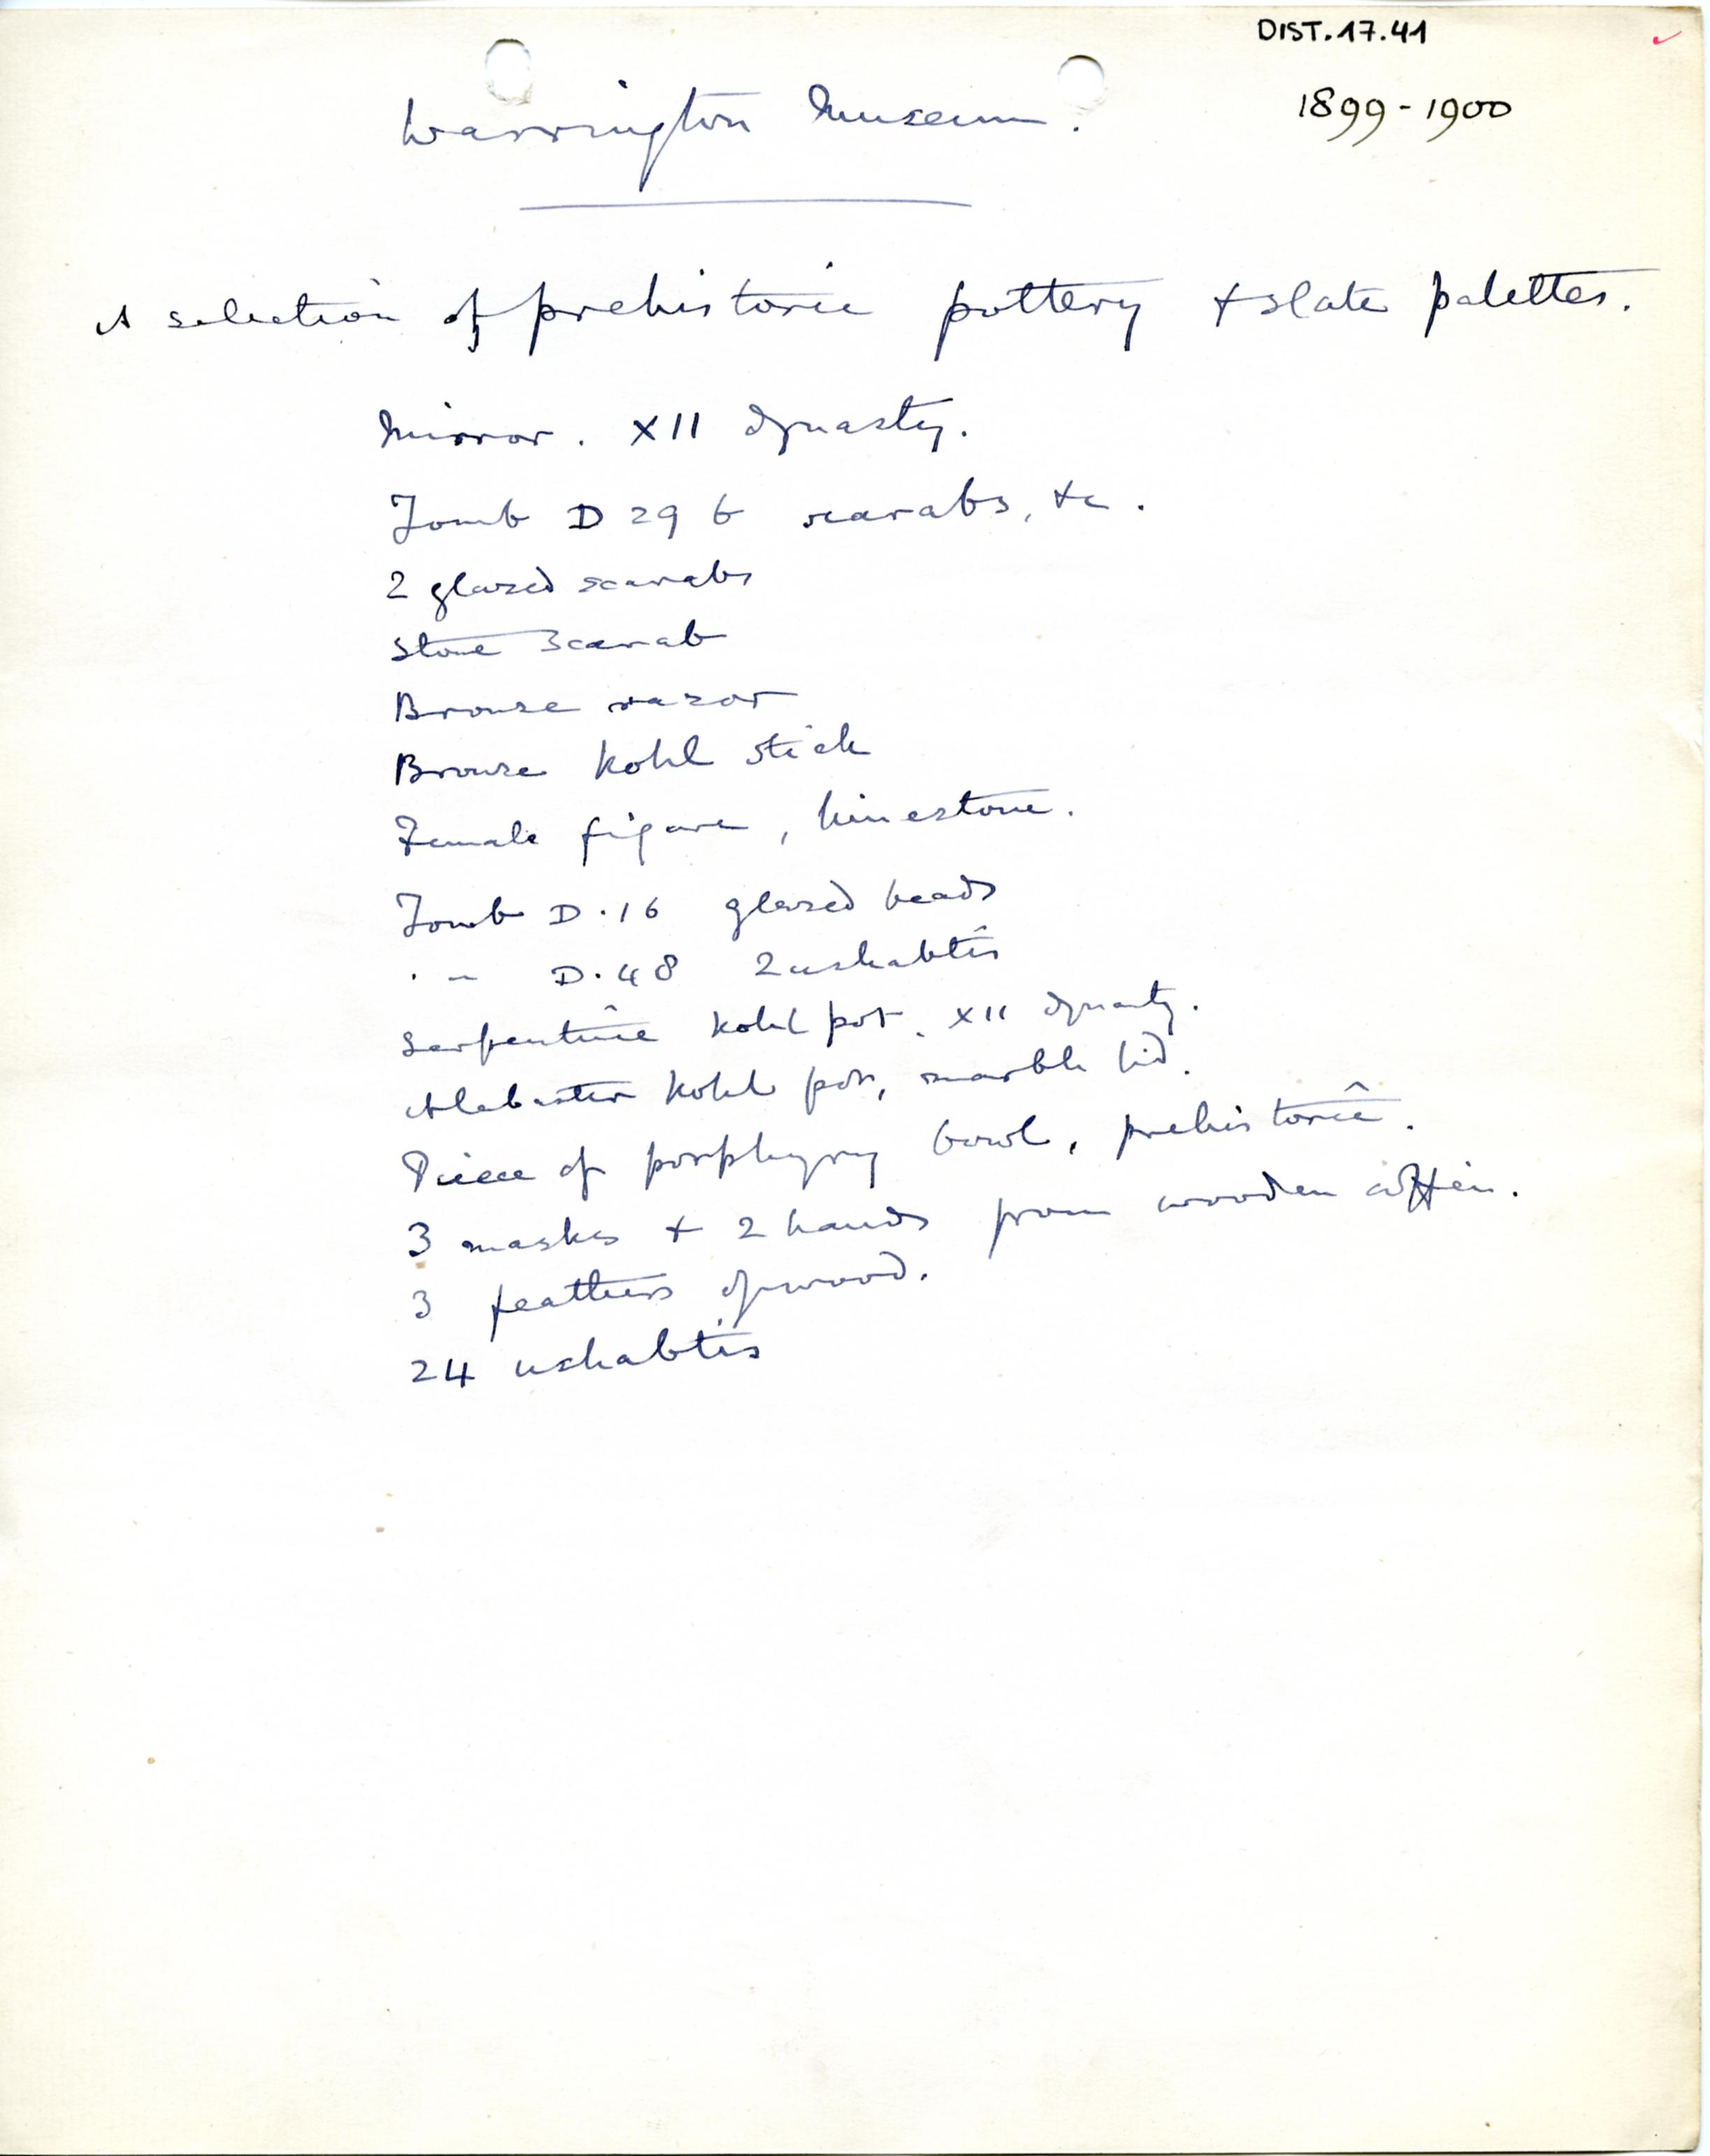 DIST.17.41
1899-1900
Warrington Museum.
A selection of prehistoric pottery + slate palettes.
Mirror. XII dynasty.
Tomb D 29 6 scarabs, &c.
2 glazed scarabs
Stone scarab
Bronze razor
Bronze kohl stick
Female figure, limestone.
Tomb D.16 glazed beads
" D.48 2 ushabtis
Serpentine kohl pot. XII dynasty.
Alabaster kohl pot, marble lid.
Piece of porphyry bowl, prehistoric.
3 masks + 2 hands from wooden coffin.
3 feathers of wood.
24 ushabtis